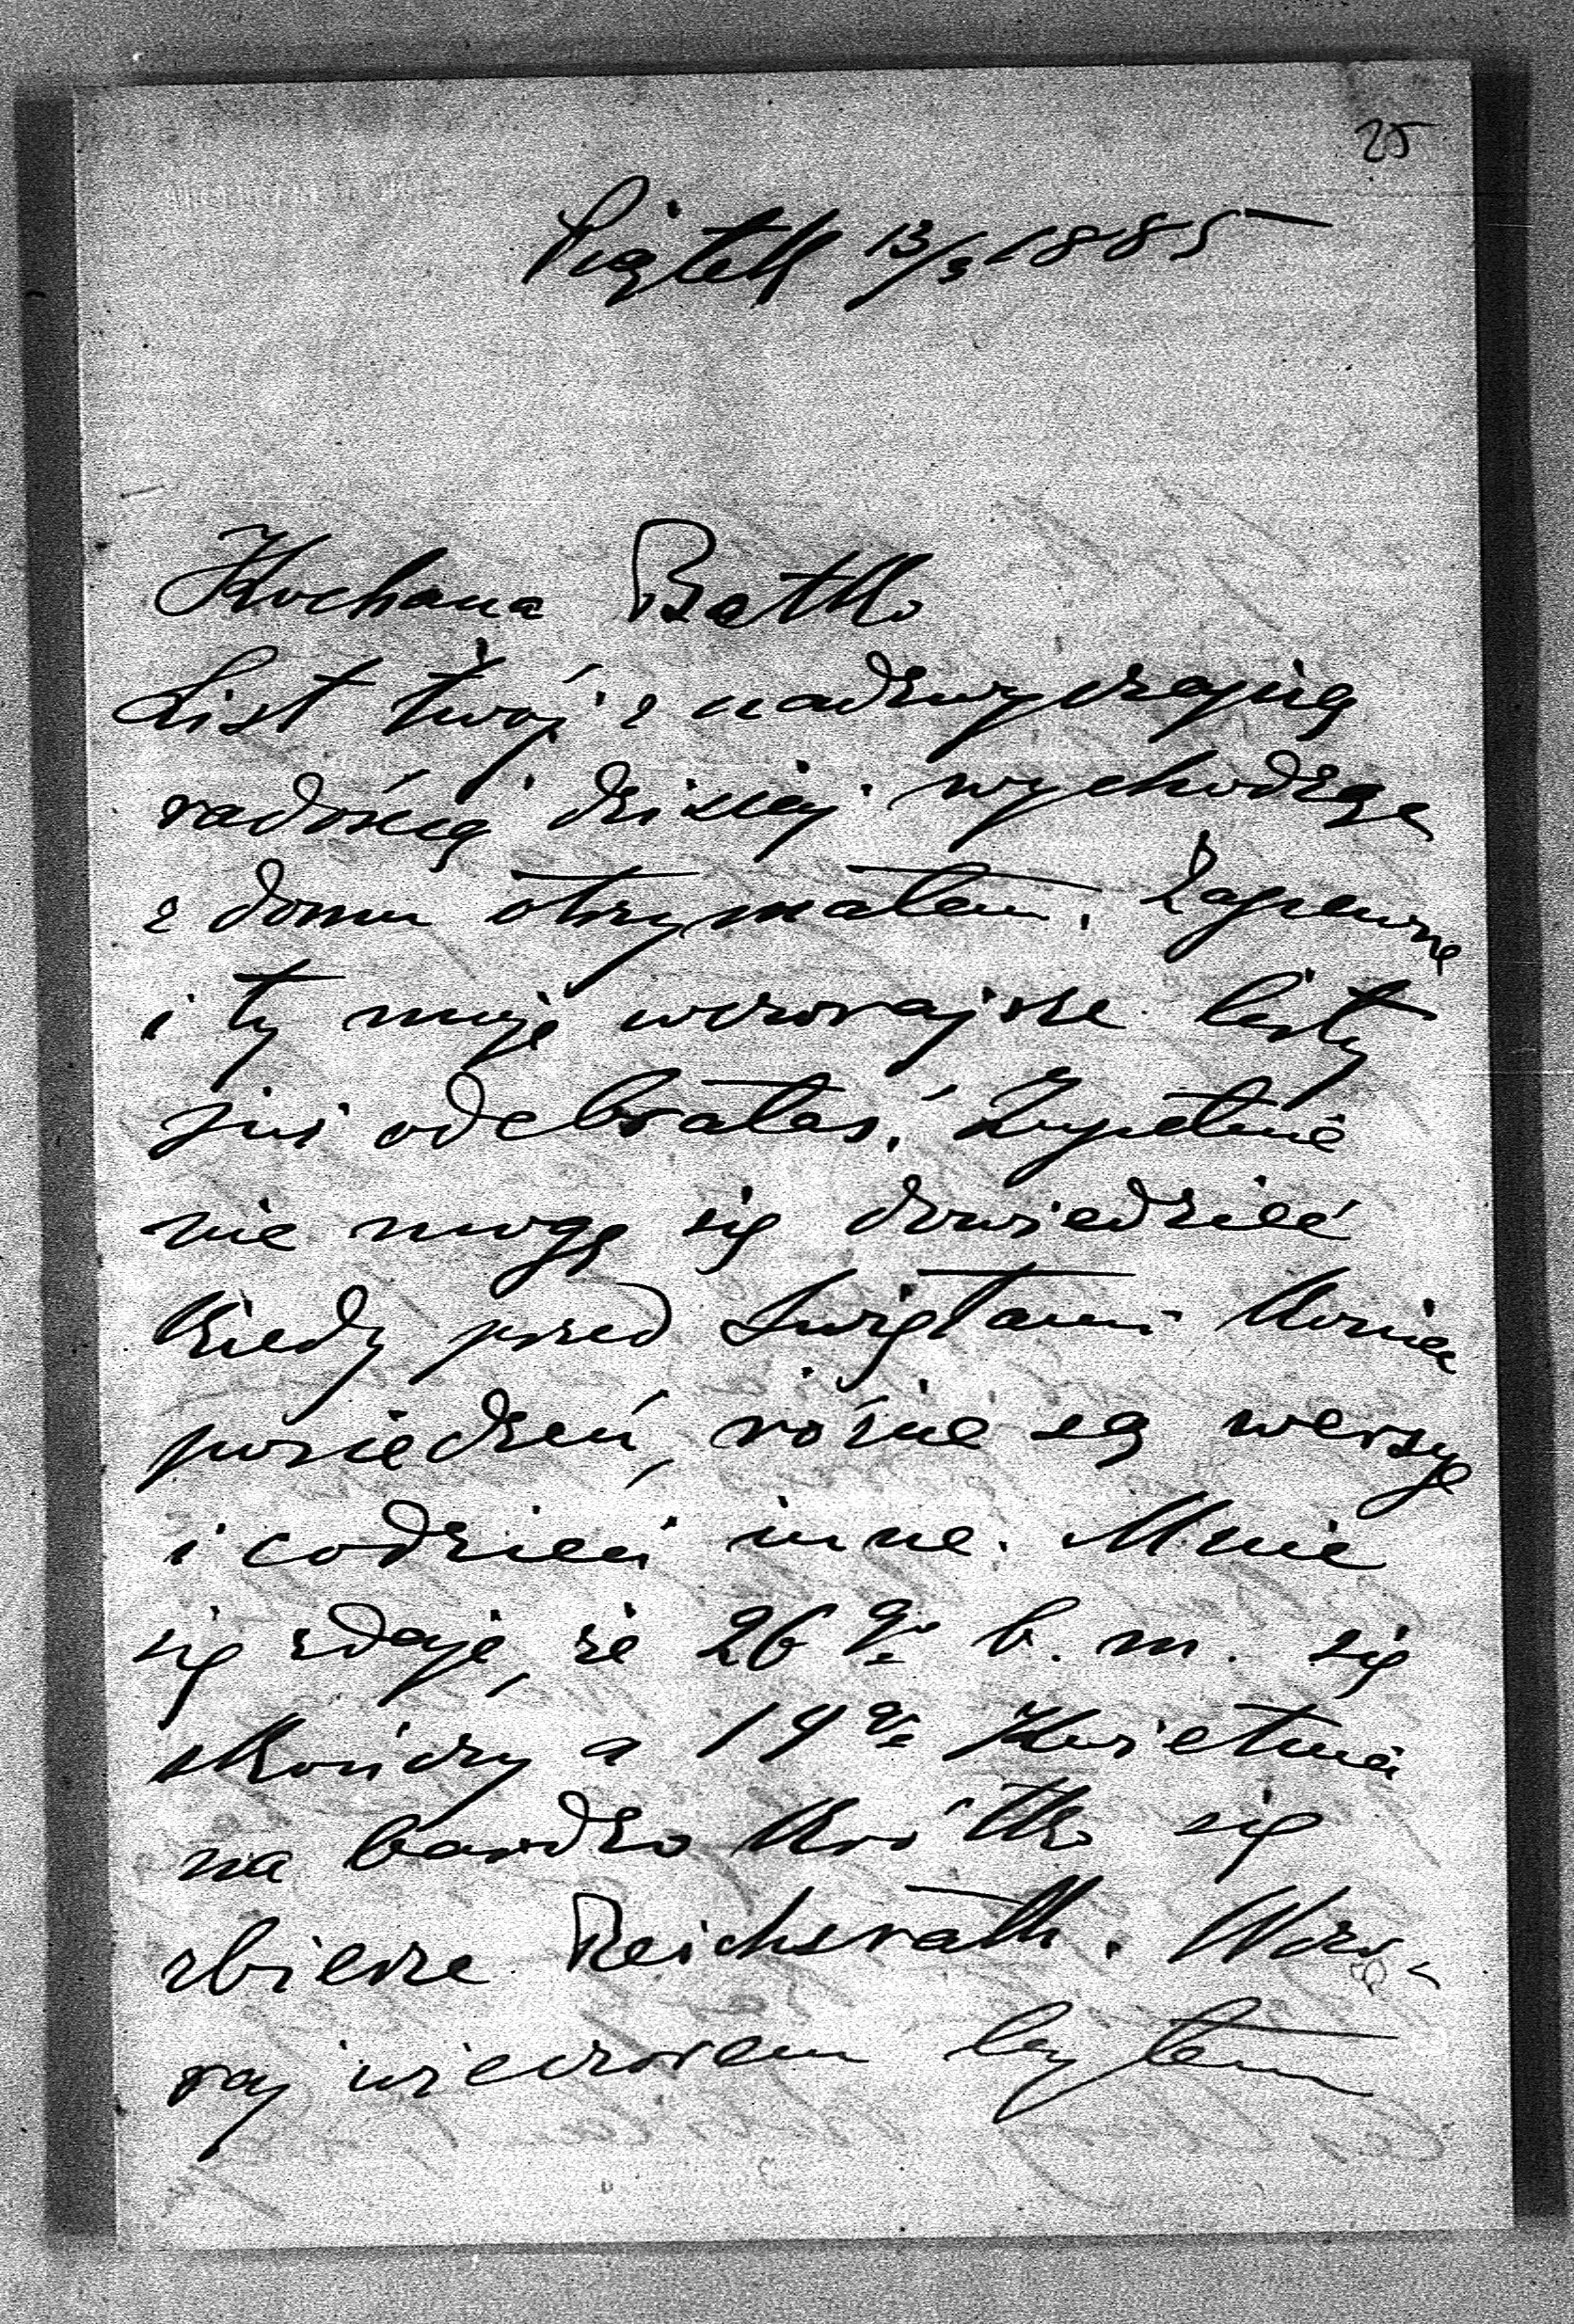 25
Piątek 13/3 1885
Kochana Betko
List twój z nadzwyczajną
radością dzisiej wychodząc
z domu otrzymałem. Zapewne
i ty moje wczorajsze listy
już odebrałaś. Zupełnie
nie mogę się dowiedzieć
kiedy przed Świętami koniec
posiedzeń, różne są wersye
i codzień inne. Mnie
się zdaje, że 26go b. m. się
skończy a 14go Kwietnia
na bardzo krótko się
zbierze Reichsrath. Wczo-
raj wieczorem byłem